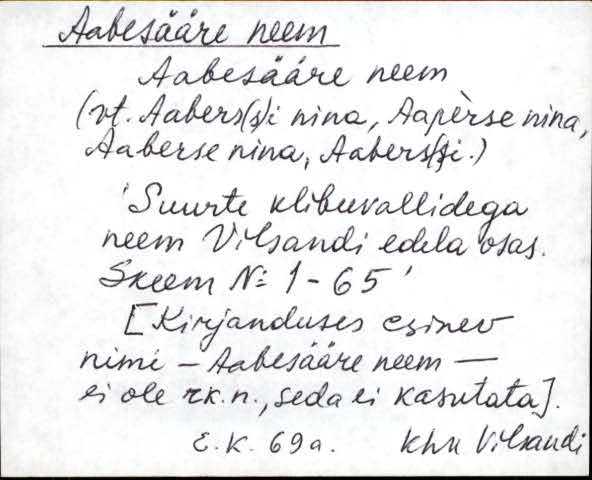 Aabesääre neem
Aabesääre neem
(vt. Aabers(s)i nina, Aapèrse nina,
Aaberse nina, Aabers(s)i.)
'Suurte klibuvallidega
neem Vilsandi edela osas.
Skeem №: 1-65'
[Kirjanduses esinev
nimi – Aabesääre neem –
ei ole rk.n., seda ei kasutata].
E.K. 69a. Khn Vilsandi